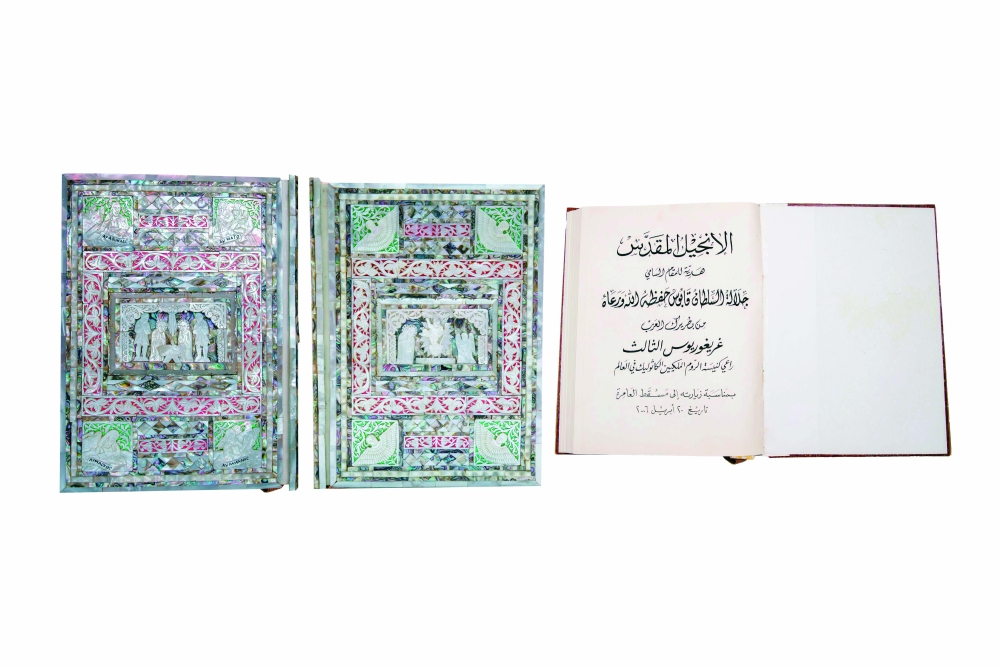 الإنجيل المقدَّس
هدية للمقام السامي
جلالة السلطان قابوس حفظه الله ورعاه
من بطريرك العرب
غريغوريوس الثالث
راعي كنيسة الروم الملكيين الكاثوليك في العالم
بمناسبة زيارته إلى مسقط العامرة
تاريخ ٢٠ أبريل ٢٠٠٦